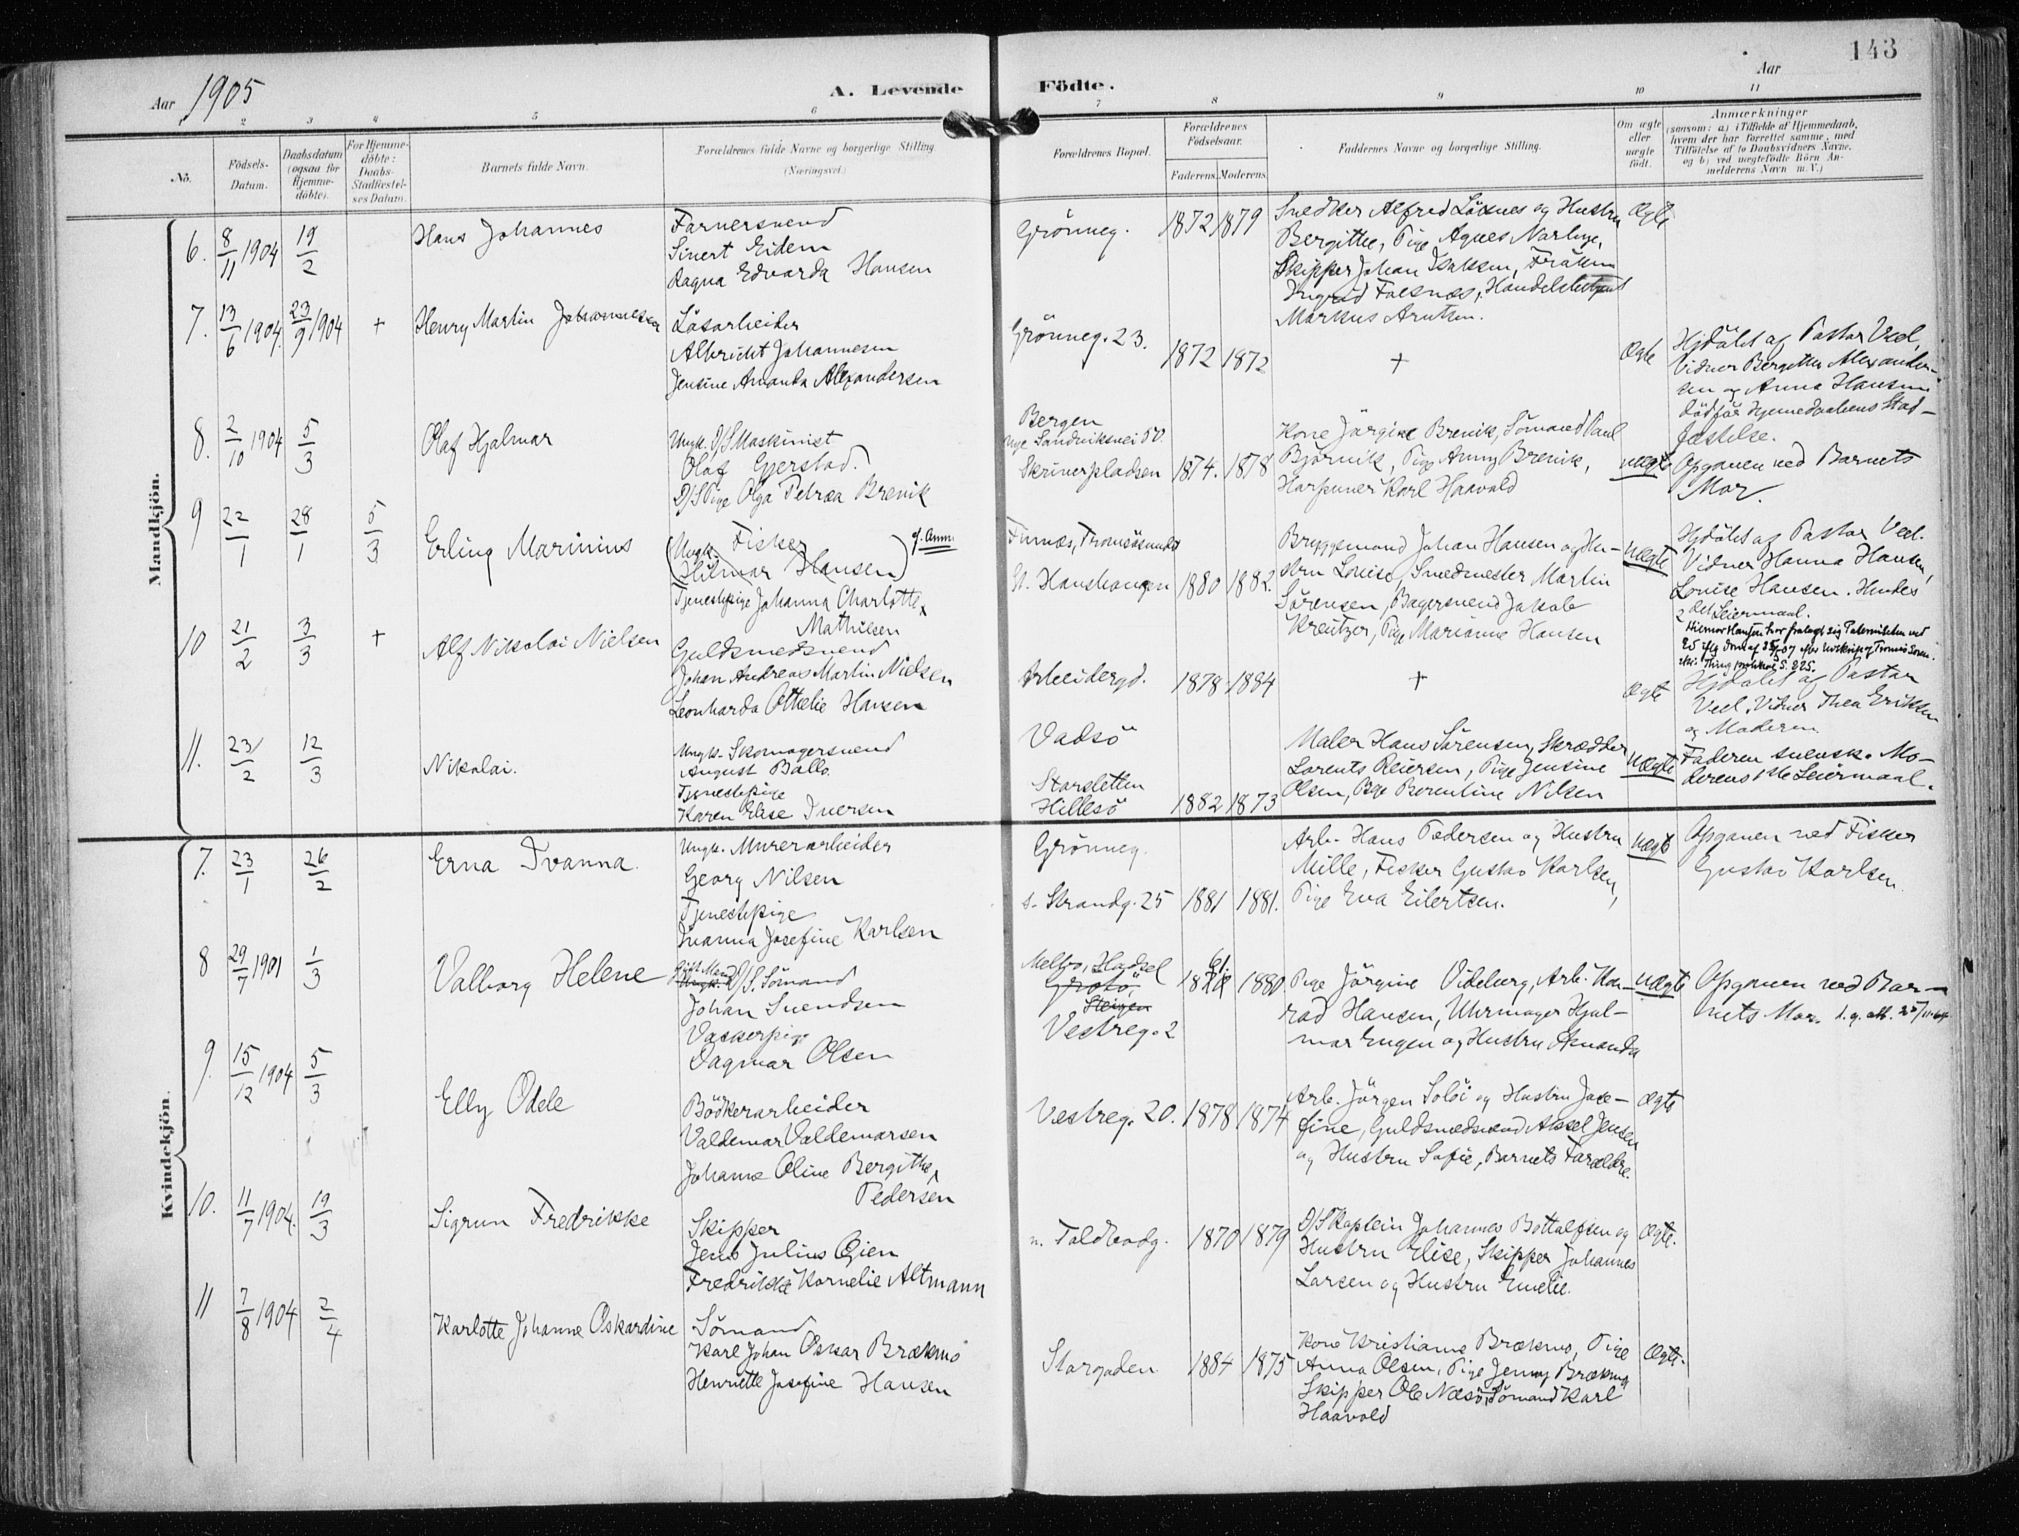 143
Aar 1905
A. Levende
Födte.
Aar
1 2 3 4 5 6 7 8 9 10 11
No.
Födsels-
Datum.
Daabsdatum
(ogsaa for
Hjemme-
döbte).
For Hjemme-
döbte:
Daabs-
Stadfæstel-
ses Datum.
Barnets fulde Navn.
Forældrenes fulde Navne og borgerlige Stilling
(Næringsvei.)
Forældrenes Bopæl.
Forældrenes
Födselsaar.
Faderens. Moderens.
Faddernes Navne og borgerlige Stilling.
Om ægte
eller
uægte
födt.
Anmærkninger
(saasom: a) i Tilfælde af Hjemmedaab,
hvem der har forrettet samme, med
Tilföielse af to Daabsvidners Navne,
og b) ved uægtefödte Börn An-
melderens Navn m. V.)
Mandkjön.
6. 8/11 1904 19/2
Hans Johannes
Farversvend
Sivert Eidem
Ragna Edvarda Hansen
Grönneg.
1872 1879
Snedker Alfred og Hustru
Bergitte, Pige Agnes
Skipper Johan Isaksen, Fröken
Ingrid
Markus Arntsen.
Ægte
7. 13/6 1904 23/9 1904 +
Henry Martin Johannessen
Lösarbeider
Albricht Johannesen
Jensine Amanda Alexandersen
Grönneg. 23.
1872 1872
+
Ægte
Hjdöbt af Pastor Veel,
Vidner Bergitte Alexander-
sen og Anna Hansen.
Död för Hjemmedaabens Stad-
fæstelse.
8. 2/10 1904 5/3
Olaf Hjalmar
Ungk. D/S Maskinist
Olaf Gjerstad.
D/S Pige Olga Petrea Brevik
Bergen
nye Sandviksvei 50.
Skriverpladsen
1874. 1878
Kone Jörgine Brevik, Sömand Paul
Björnvik, Pige Anny Brevik,
Harpuner Karl Haavold
uægte
Opgaven ved Barnets
Mor.
9 22/1 28/1 5/3
Erling Marinius
(Ungk. Fisker
Hilmar Hansen) cf. Anm.
Tjenestepige Johanna Charlotte
Mathilsen
Finnæs, Tromsösundet
St. Hanshaugen
1880 1882.
Bryggemand Johan Hansen og Hu-
stru Louise, Smedmester Martin
Sörensen, Bagersvend Jakob
Kreutzer, Pige Marianne Hansen
Uægte
Hjdöbt af Pastor Veel.
Vidner Hanna Hansen,
Louise Hansen. Hendes
2det Leiermaal.
Hilmar Hansen har fralagt sig Paterniteten ved
10 21/2 3/3 +
Alf Nikolai Nielsen
Guldsmedsvend
Johan Andreas Martin Nielsen
Leonharda Ottelie Hansen
Arbeidergd.
1878 1884
+
Ægte
Hjdöbt af Pastor
Veel. Vidner Thea Eriksen
og Moderen.
11. 23/2 12/3
Nikolai.
Ungk. Skomagersvend
August Ballo.
Tjenestepige
Karen Elise Iversen
Vadsö
Storsletten
Hillesö
1882 1873
Maler Hans Sörensen, Skrædder
Lorents Reiersen, Pige Jensine
Olsen, Pige Berentine Nilsen
Uægte
Faderen svensk. Mo-
derens 1ste Leiermaal.
Kvindekjön.
7. 23/1 26/2
Erna Ivanna.
Ungk. Murerarbeider
Georg Nilsen
Tjenestepige
Ivanna Josefine Karlsen
Grönneg.
s. Strandg. 25
1881 1881.
Arb. Hans Pedersen og Hustru
Mille, Fisker Gustav Karlsen,
Pige Eva Eilertsen.
uægte
Opgaven ved Fisker
Gustav Karlsen.
8 29/7 1901 1/3
Valborg Helene
Gift Mand
D/S. Sömand
Johan Svendsen
Vaskerpige
Dagmar Olsen
Melbo, Hadsel
Grotö,
Steigen
Vestreg. 2
1861 1880
Pige Jörgine Videberg, Arb. Kon-
rad Hansen, Uhrmager Hjal-
mar Eugen og Hustru Amanda
uægte
Opgaven ved Bar-
nets Mor.
9. 15/12 1904 5/3
Elly Odele
Bödkerarbeider
Valdemar Valdemarsen
Johanne Oline Bergitte
Pedersen
Vestreg. 20.
1878 1874
Arb. Jörgen Solöi og Hustru Jose-
fine, Guldsmedsvend Aksel Jensen
og Hustru Sofie, Barnets Forældre.
Ægte
10. 11/7 1904. 19/3
Sigrun Fredrikke
Skipper
Jens Julius Öien
Fredrikke Kornelie Altmann
n. Toldbodg.
1870 1879
D/S Kaptein Johannes Bottolfsen og
Hustru Elise, Skipper Johannes
Larsen og Hustru Emelie.
Ægte.
11 7/8 1904 2/4
Karlotte Johanne Oskardine
Sömand
Karl Johan Oskar Brækmo
Henriette Josefine Hansen
Storgaden
1884 1875
Kone Kristiane Brækmo, Pige
Anna Olsen, Pige Jenny Brækmo
Skipper Ole Næsö, Sömand Karl
Haavold
Ægte.